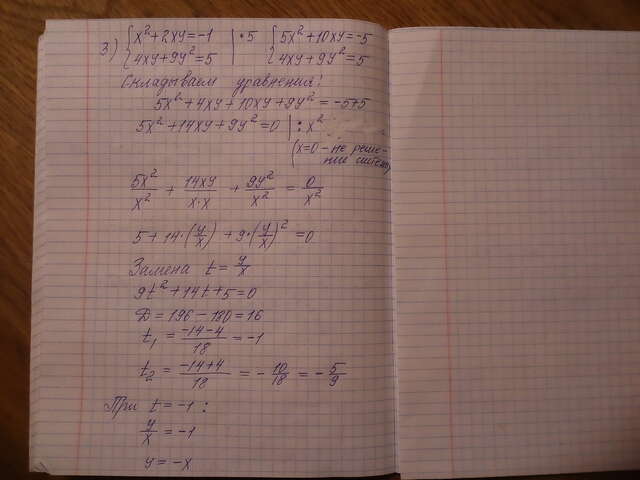 3) { x² + 2xy = -1 | · 5 { 5x² + 10xy = -5
4xy + 9y² = 5 | 4xy + 9y² = 5
Складываем уравнения!
5x² + 4xy + 10xy + 9y² = -5+5
5x² + 14xy + 9y² = 0 | : x²
(x=0 - не реше-
ние системы
5x²/x² + 14xy/x·x + 9y²/x² = 0/x²
5 + 14·(y/x) + 9·(y/x)² = 0
Замена t = y/x
9t² + 14t + 5 = 0
D = 196 - 180 = 16
t₁ = -14-4/18 = -1
t₂ = -14+4/18 = -10/18 = -5/9
При t = -1 :
y/x = -1
y = -x